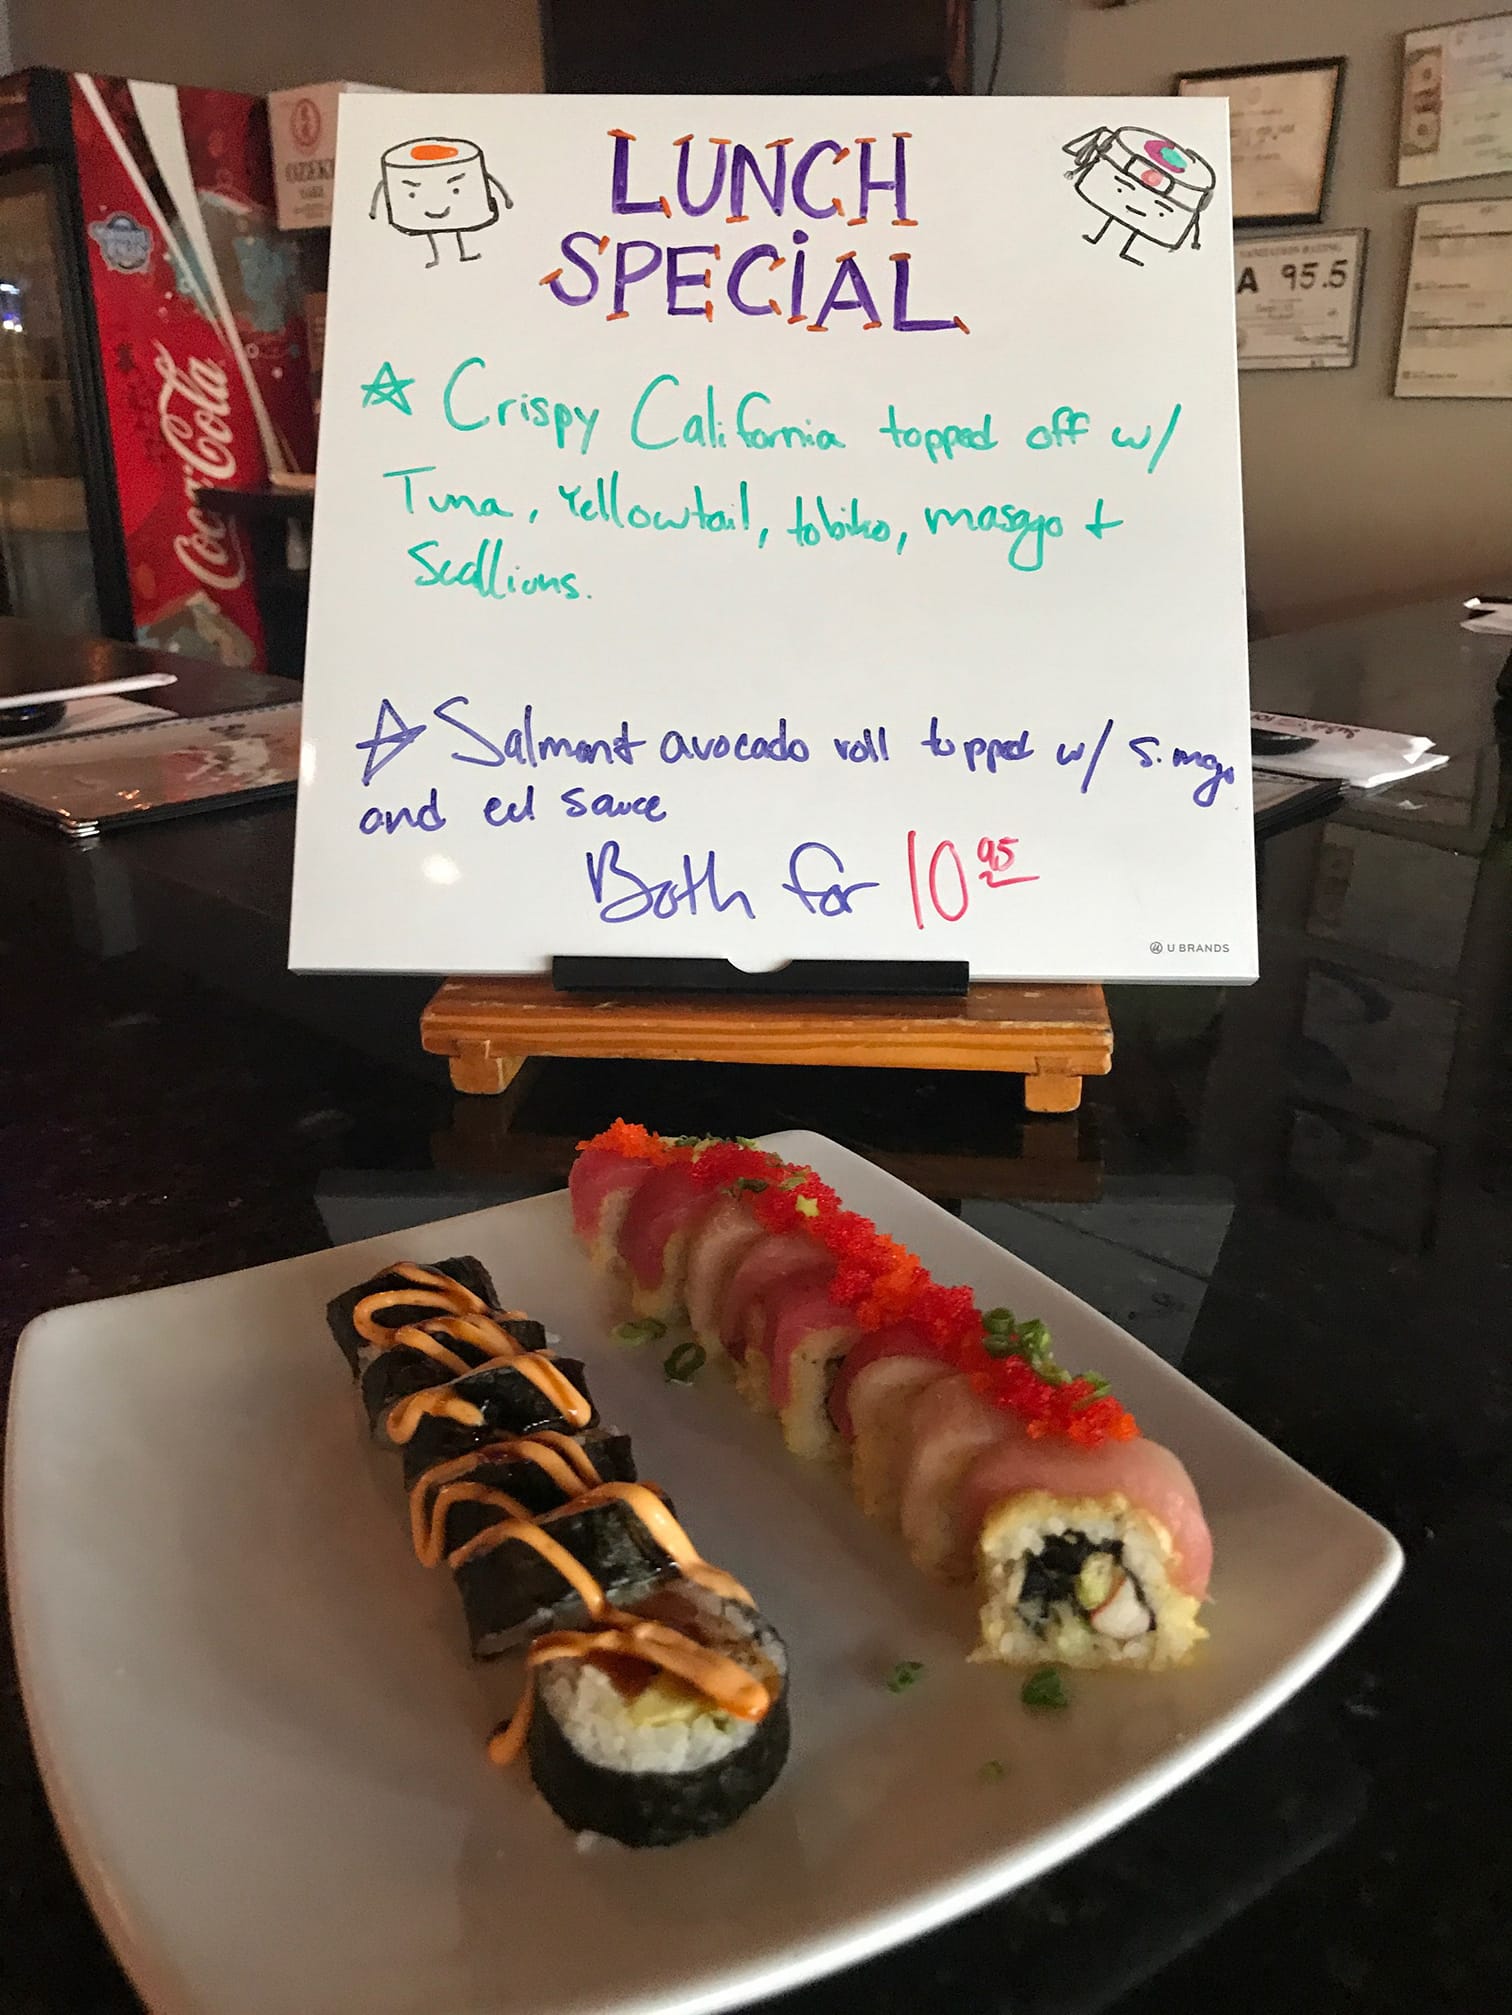 LUNCH
SPECIAL
☆ Crispy California topped off w/
Tuna, Yellowtail, tobiko, masago +
Scallions.
☆ Salmon + avocado roll topped w/ S. mayo
and eel sauce
Both for 10 95
U BRANDS
Coca-Cola
OZEKI
SANITATION RATING
A 95.5